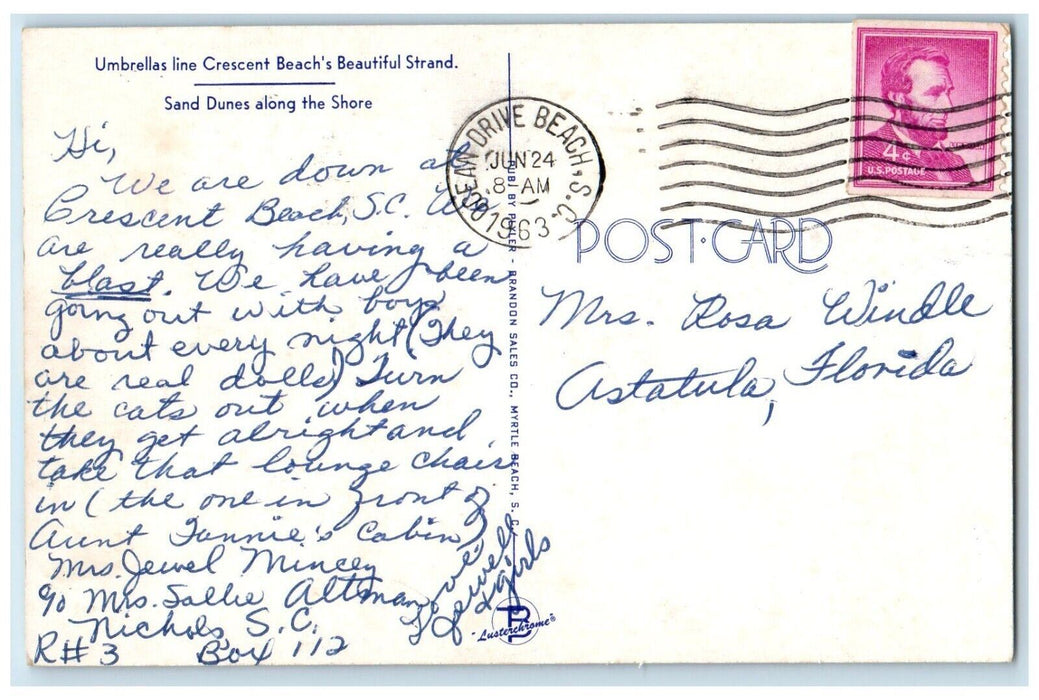 Umbrellas line Crescent Beach's Beautiful Strand.
Sand Dunes along the Shore
Hi,
We are down at
Crescent Beach, S.C. We
are really having a
blast. We have been
going out with boys
about every night (They
are real dolls) Turn
the cats out when
they get alright and
take that lounge chair
in (the one in front of
Aunt Fannie's Cabin)
Mrs. Jewel Mincey
c/o Mrs. Sallie Altman
Nichols, S.C.
R#3 Box 112
Love
Jewell
& girls
PUB. BY - BRANDON SALES CO., MYRTLE BEACH, S. C.
"Lusterchrome"®
OCEAN DRIVE BEACH, S.C.
JUN 24
8 AM
1963
4¢
U.S. POSTAGE
POST CARD
Mrs. Rosa Windle
Astatula, Florida